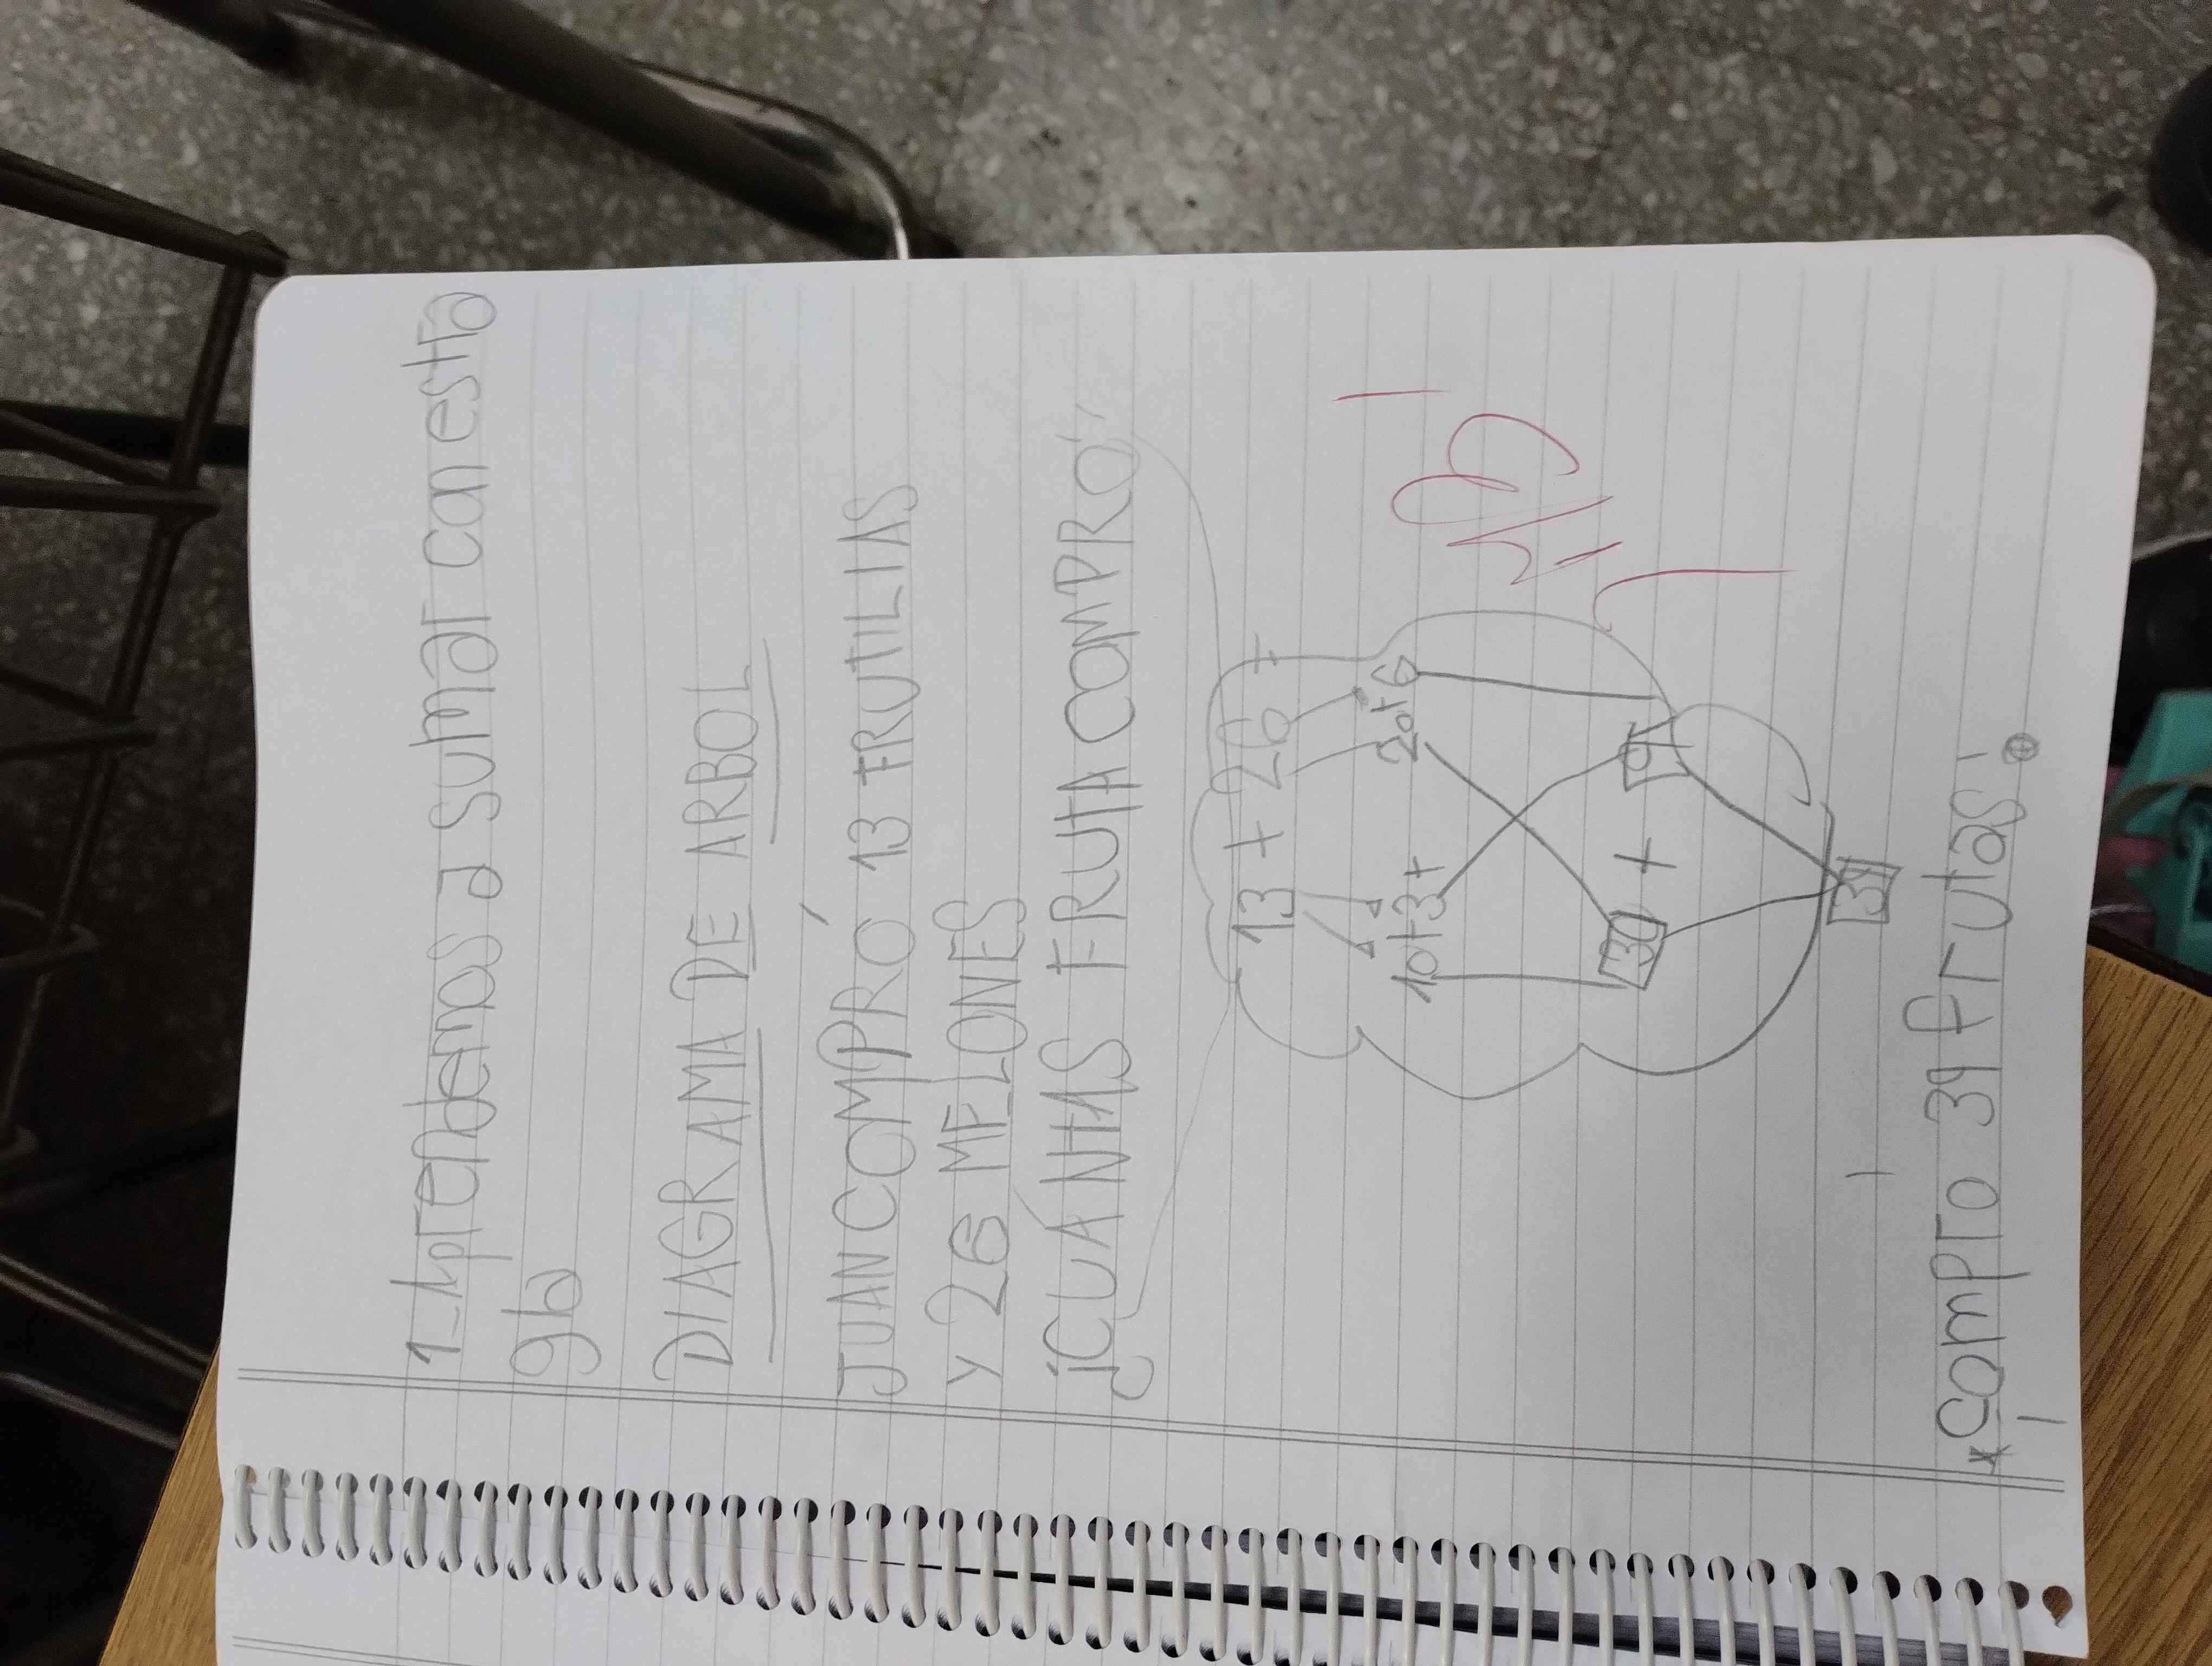 1_Aprendemos a sumar con estra
gia
DIAGRAMA DE ARBOL
JUAN COMPRÓ 13 FRUTILIAS
Y 26 MELONES
¡CUÁNTAS FRUTA COMPRÓ!
13 + 26 =
10+3+ 20+6
30 + 9
39
* Compro 39 frutas!